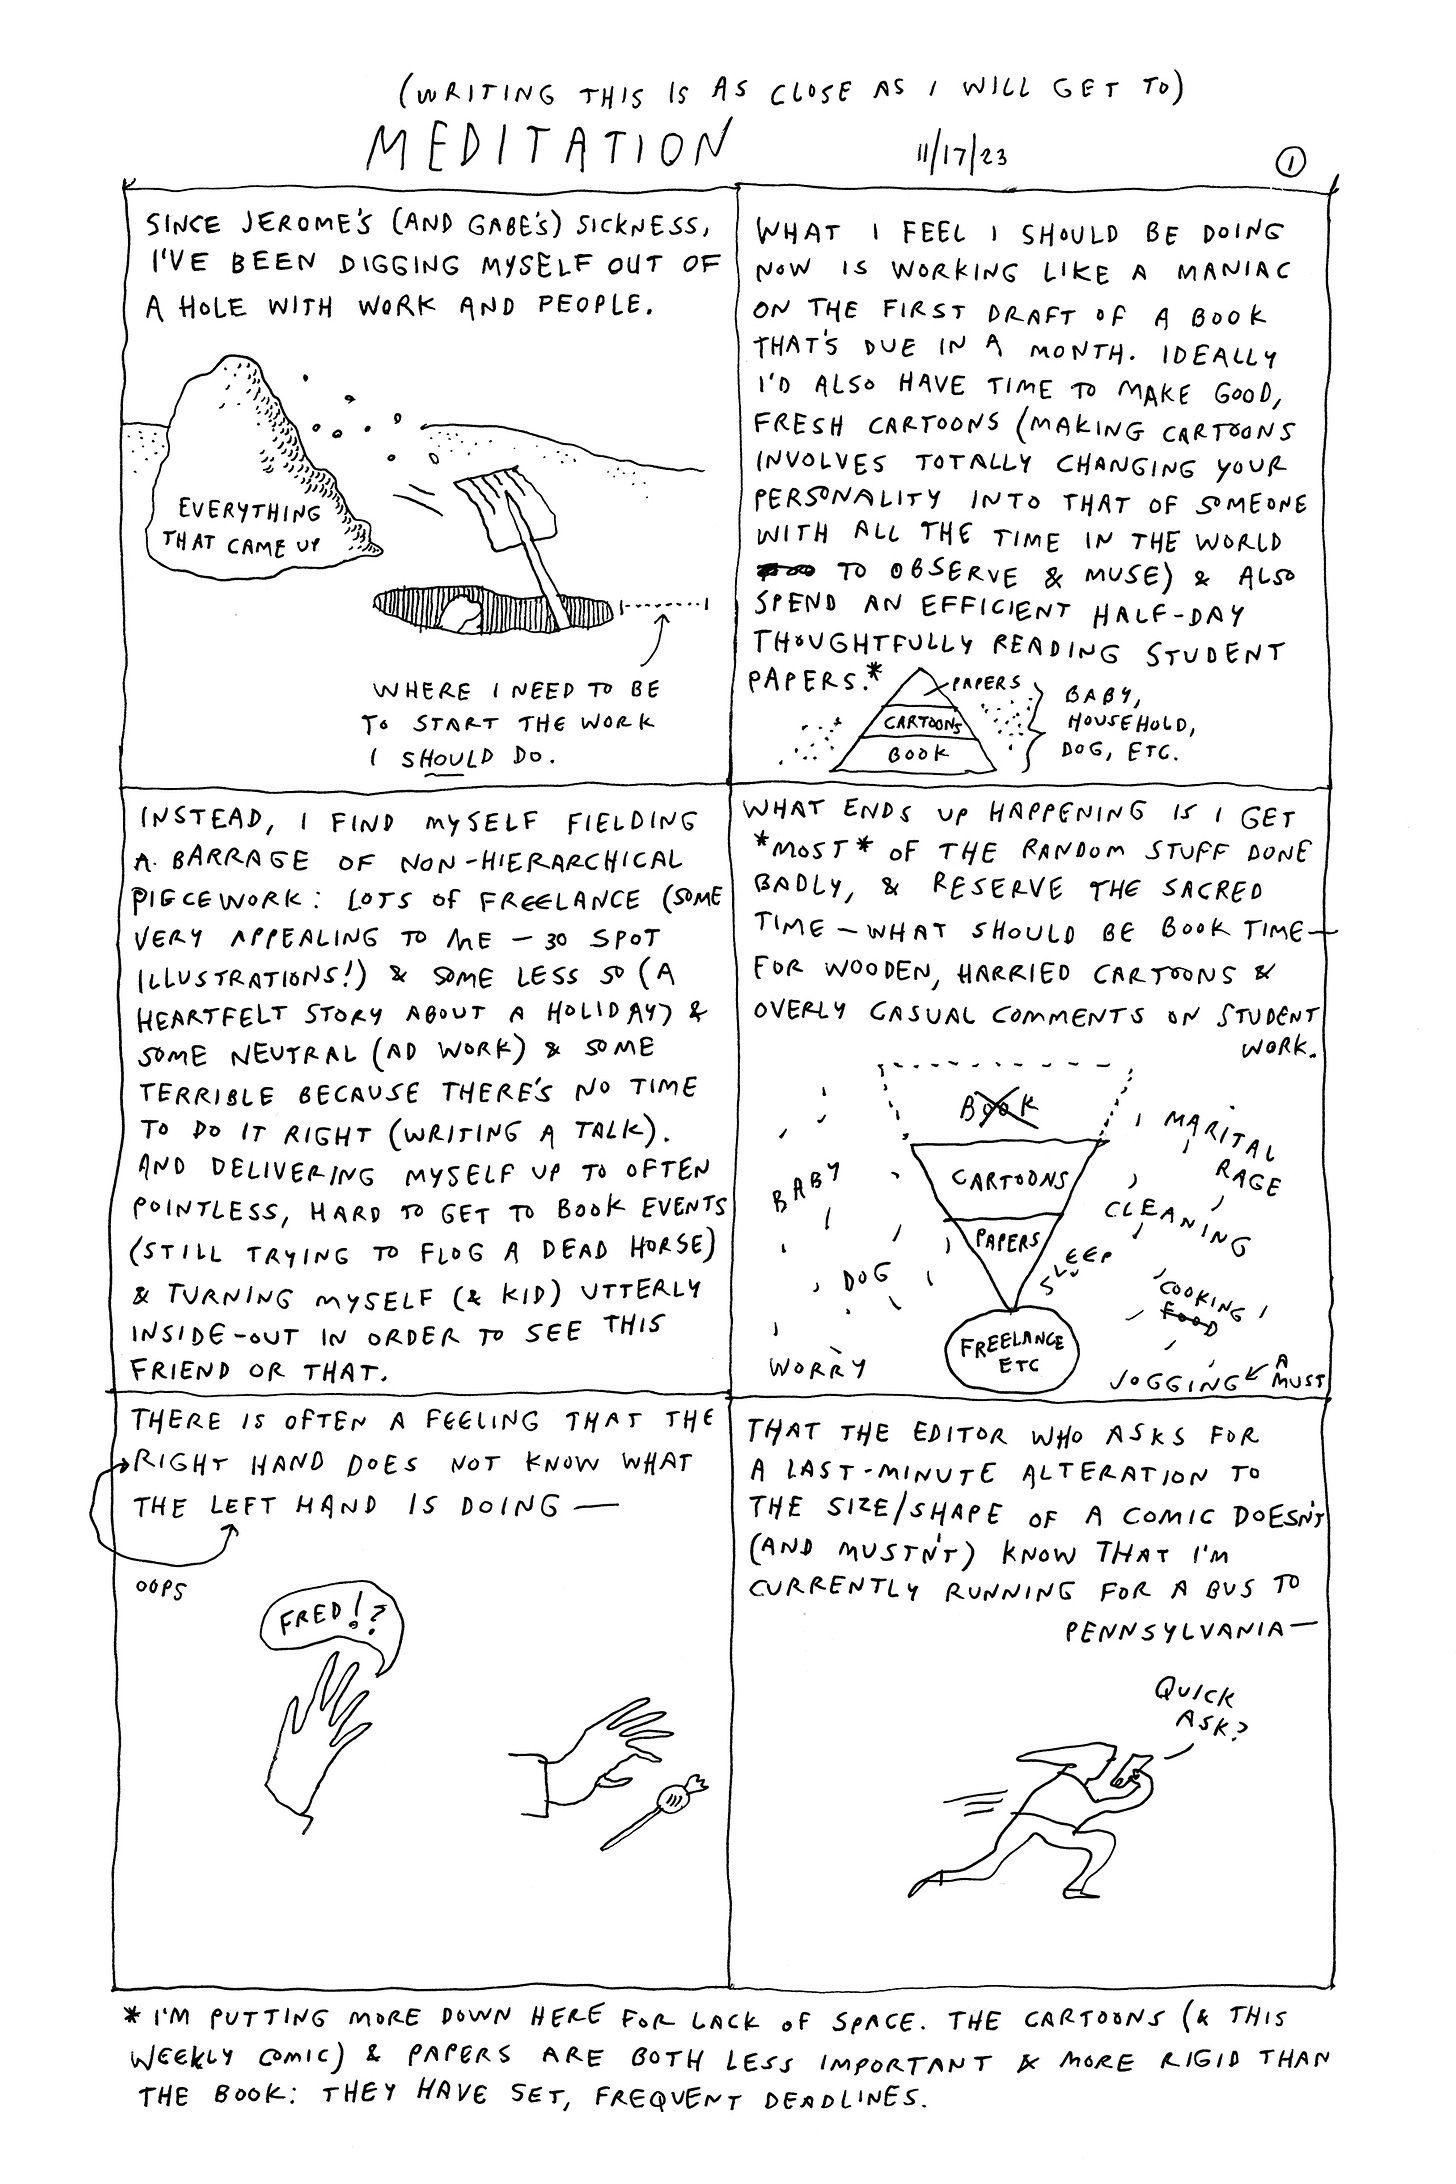 (WRITING THIS IS AS CLOSE AS I WILL GET TO)
MEDITATION
11/17/23
1
SINCE JEROME'S (AND GABE'S) SICKNESS,
I'VE BEEN DIGGING MYSELF OUT OF
A HOLE WITH WORK AND PEOPLE.
EVERYTHING
THAT CAME UP
WHERE I NEED TO BE
TO START THE WORK
I SHOULD DO.
WHAT I FEEL I SHOULD BE DOING
NOW IS WORKING LIKE A MANIAC
ON THE FIRST DRAFT OF A BOOK
THAT'S DUE IN A MONTH. IDEALLY
I'D ALSO HAVE TIME TO MAKE GOOD,
FRESH CARTOONS (MAKING CARTOONS
INVOLVES TOTALLY CHANGING YOUR
PERSONALITY INTO THAT OF SOMEONE
WITH ALL THE TIME IN THE WORLD
TO OBSERVE & MUSE) & ALSO
SPEND AN EFFICIENT HALF-DAY
THOUGHTFULLY READING STUDENT
PAPERS.*
PAPERS
CARTOONS
BOOK
BABY,
HOUSEHOLD,
DOG, ETC.
INSTEAD, I FIND MYSELF FIELDING
A BARRAGE OF NON-HIERARCHICAL
PIECEWORK: LOTS OF FREELANCE (SOME
VERY APPEALING TO ME – 30 SPOT
ILLUSTRATIONS!) & SOME LESS SO (A
HEARTFELT STORY ABOUT A HOLIDAY) &
SOME NEUTRAL (AD WORK) & SOME
TERRIBLE BECAUSE THERE'S NO TIME
TO DO IT RIGHT (WRITING A TALK).
AND DELIVERING MYSELF UP TO OFTEN
POINTLESS, HARD TO GET TO BOOK EVENTS
(STILL TRYING TO FLOG A DEAD HORSE)
& TURNING MYSELF (& KID) UTTERLY
INSIDE-OUT IN ORDER TO SEE THIS
FRIEND OR THAT.
WHAT ENDS UP HAPPENING IS I GET
*MOST* OF THE RANDOM STUFF DONE
BADLY, & RESERVE THE SACRED
TIME – WHAT SHOULD BE BOOK TIME –
FOR WOODEN, HARRIED CARTOONS &
OVERLY CASUAL COMMENTS ON STUDENT
WORK.
BOOK
CARTOONS
PAPERS
FREELANCE
ETC
BABY
DOG
WORRY
MARITAL
RAGE
CLEANING
SLEEP
COOKING
FOOD
JOGGING
A
MUST
THERE IS OFTEN A FEELING THAT THE
RIGHT HAND DOES NOT KNOW WHAT
THE LEFT HAND IS DOING —
OOPS
FRED!?
THAT THE EDITOR WHO ASKS FOR
A LAST-MINUTE ALTERATION TO
THE SIZE/SHAPE OF A COMIC DOESN'T
(AND MUSTN'T) KNOW THAT I'M
CURRENTLY RUNNING FOR A BUS TO
PENNSYLVANIA —
QUICK
ASK?
* I'M PUTTING MORE DOWN HERE FOR LACK OF SPACE. THE CARTOONS (& THIS
WEEKLY COMIC) & PAPERS ARE BOTH LESS IMPORTANT & MORE RIGID THAN
THE BOOK: THEY HAVE SET, FREQUENT DEADLINES.